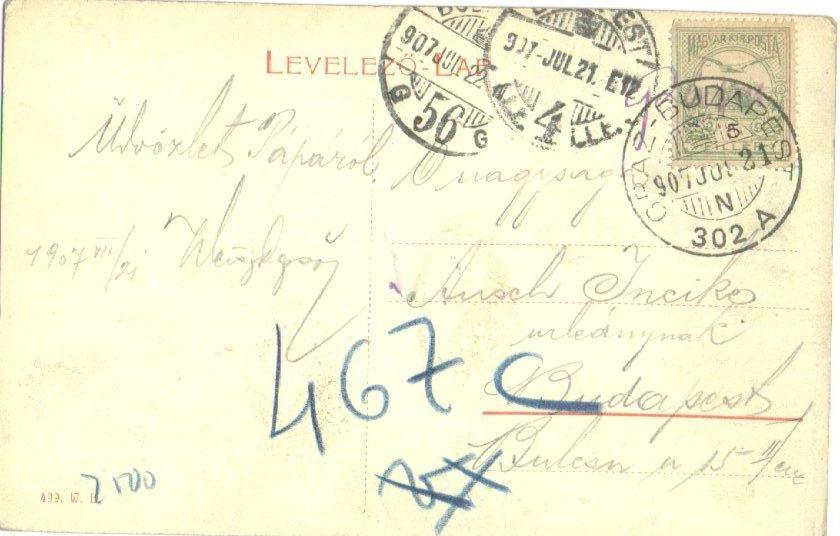 LEVELEZŐ-LAP
MAGYAR KIR. POSTA
907 JUL 22
56 G
G
BUDAPEST
907-JUL 21. E12
4
GRAZ-BUDAPEST
5
907 JUL 21
N
302 A
Üdvözlet Pápáról
1907 VII/21
Nagyságos
Ausch Incike
urleánynak
Budapest
Bulcsu u 15 II em
467 C
2500
499. W. L.